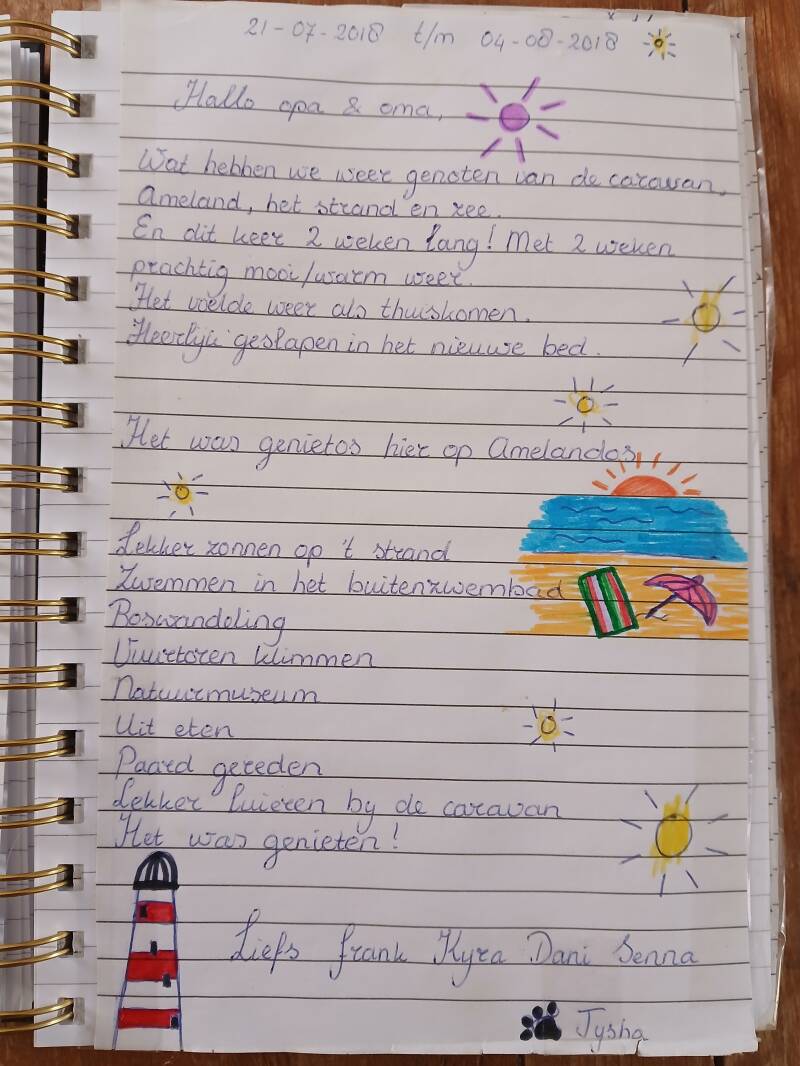 21-07-2018 t/m 04-08-2018
Hallo opa & oma,
Wat hebben we weer genoten van de caravan,
Ameland, het strand en zee.
En dit keer 2 weken lang! Met 2 weken
prachtig mooi/warm weer.
Het voelde weer als thuiskomen.
Heerlijk geslapen in het nieuwe bed.
Het was genietos hier op Amelandos,
Lekker zonnen op 't strand
Zwemmen in het buitenzwembad
Boswandeling
Vuurtoren klimmen
Natuurmuseum
Uit eten
Paard gereden
Lekker luieren by de caravan
Het was genieten!
Liefs Frank Kyra Dani Senna
Tysha